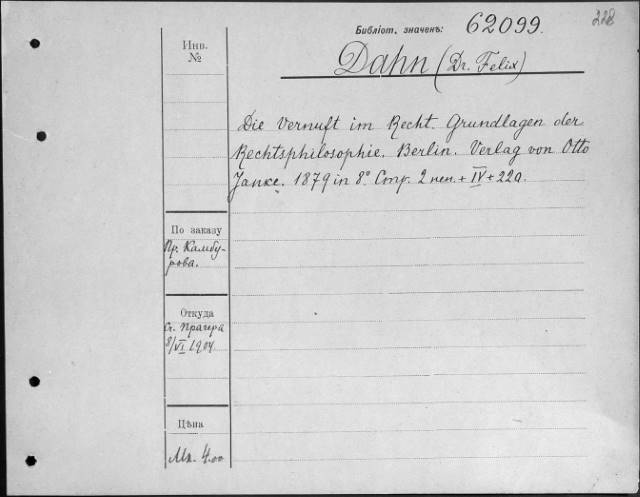 228
Библіот. значенъ: 62099.
Инв.
№
Dahn (Dr. Felix)
Die Vernuft im Recht. Grundlagen der
Rechtsphilosophie. Berlin. Verlag von Otto
Janke. 1879 in 8° Стр. 2 нен. + IV + 220.
По заказу
Пр. Камбу-
рова.
Откуда
Ст. Прагера
8/VI 1904.
Цѣна
Мк. 4.00